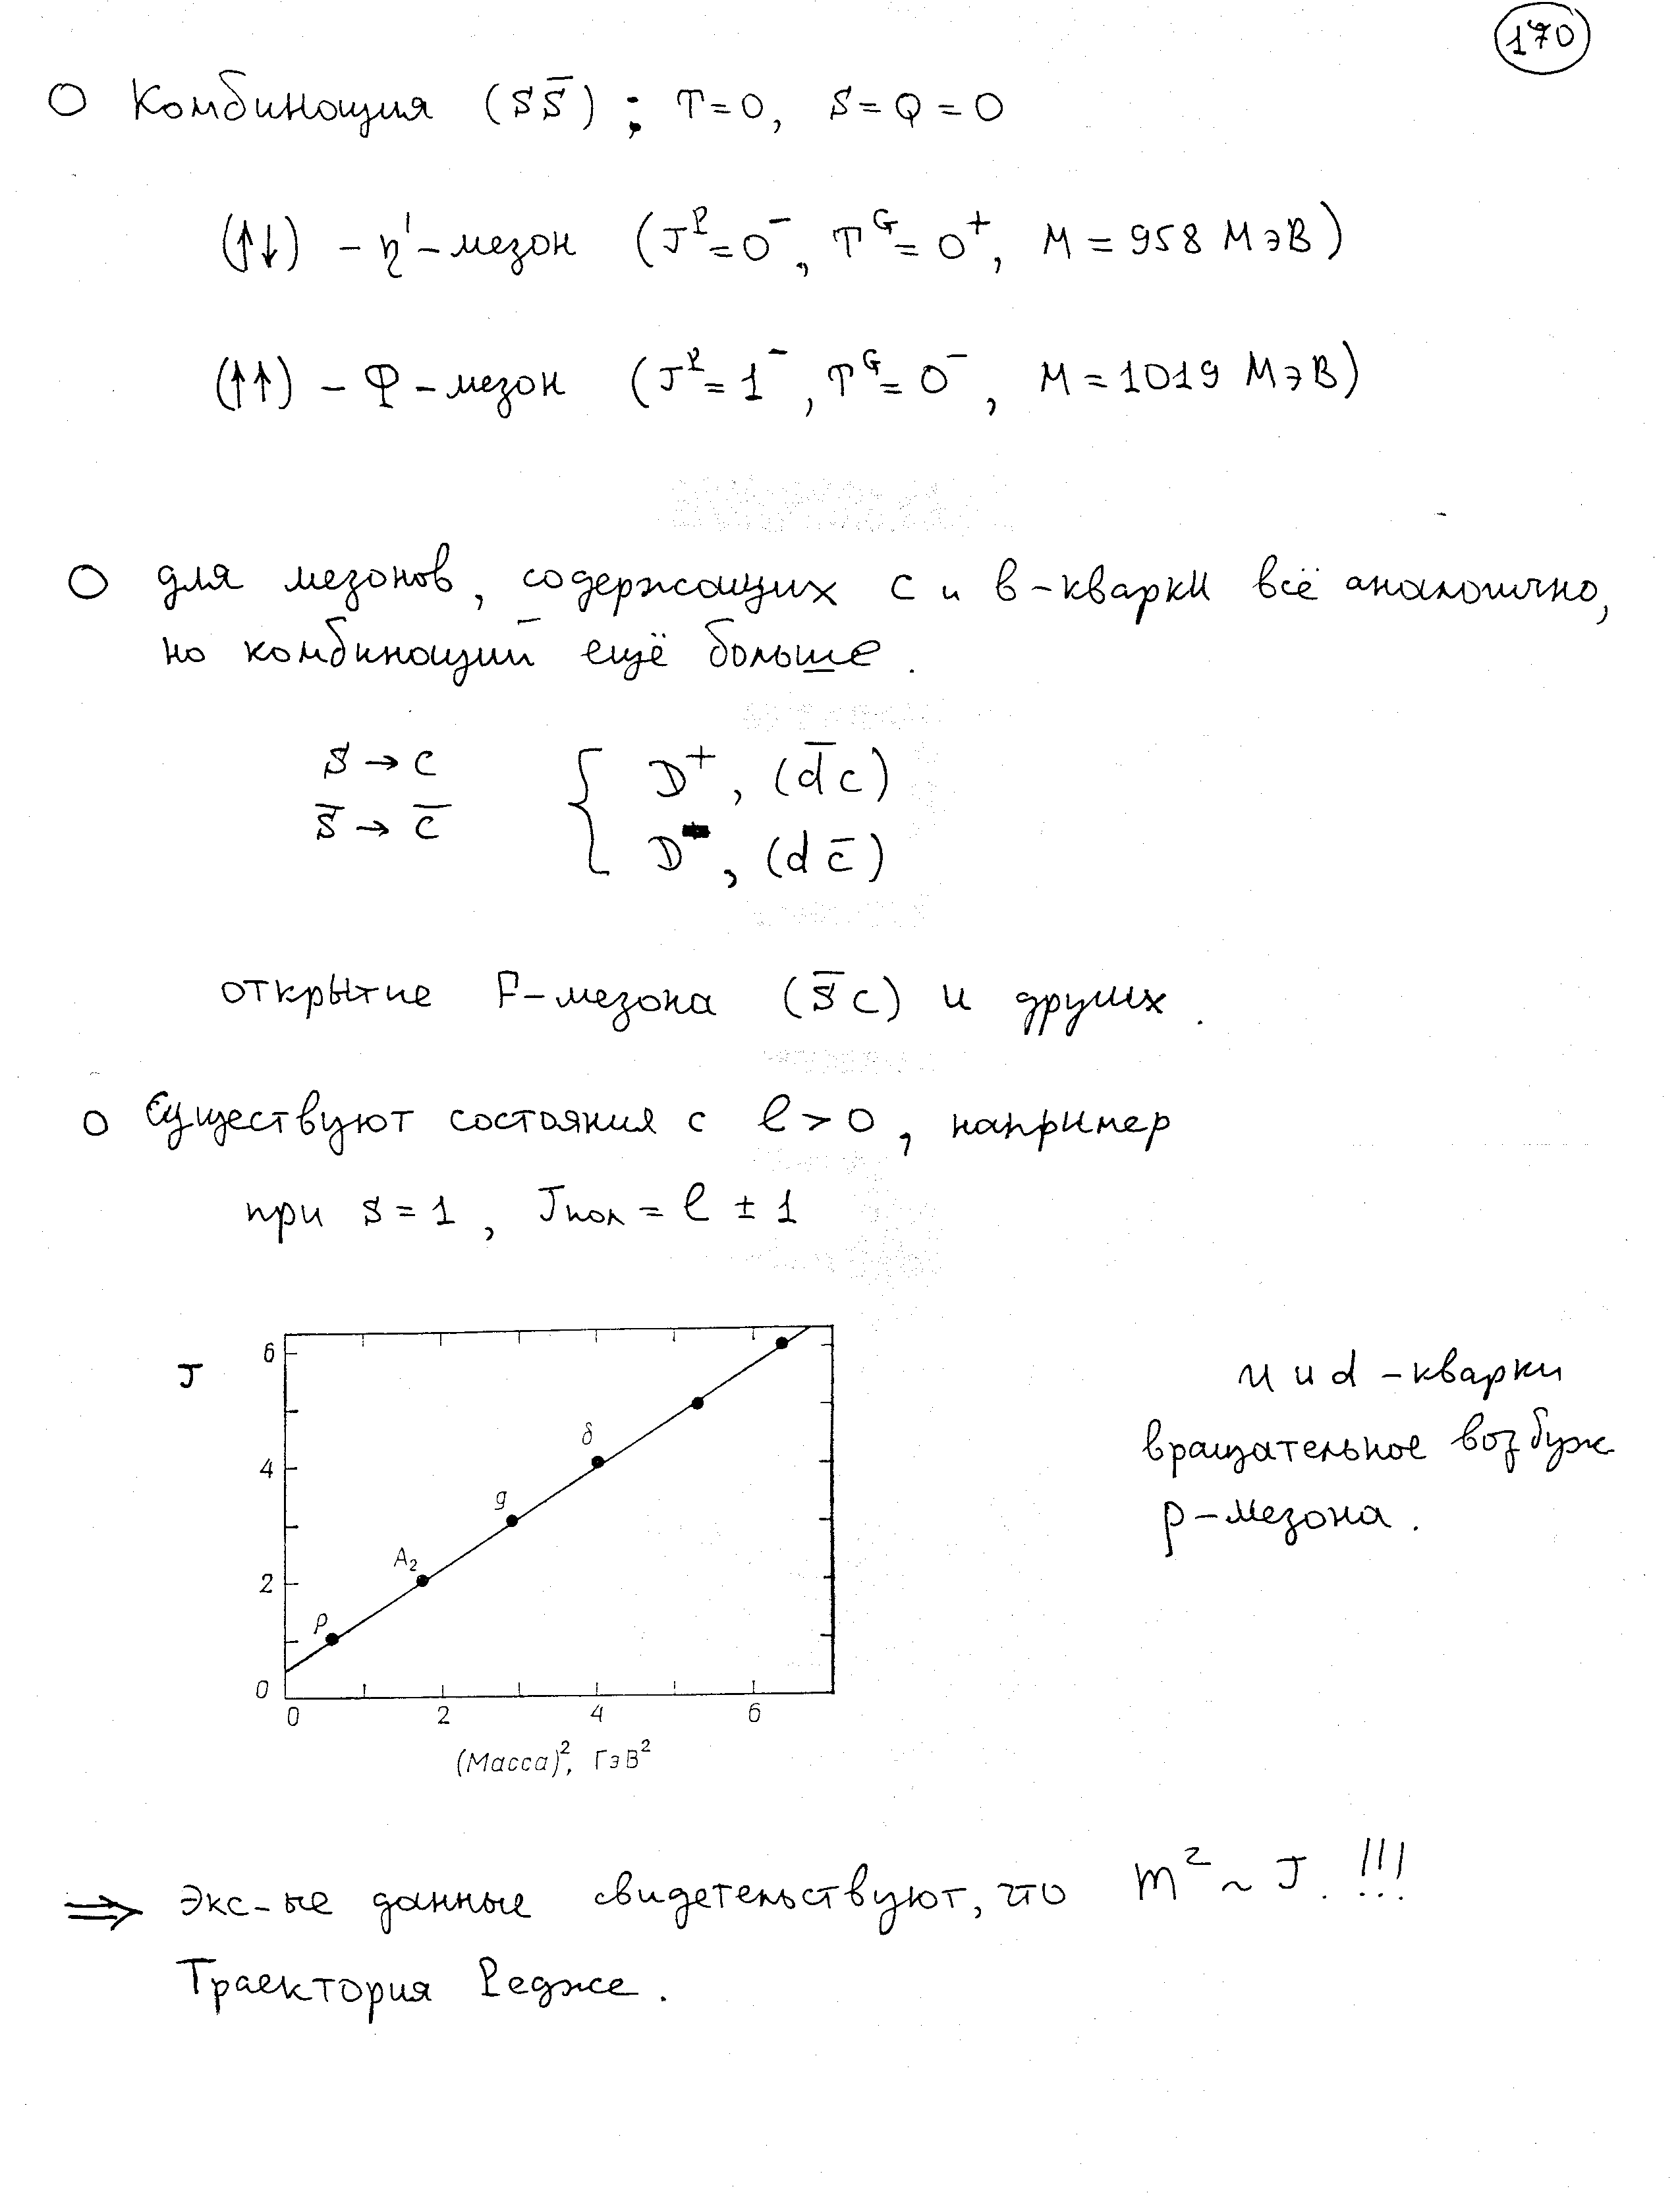 170
О Комбинация (SS̄) ; T=0, S=Q=0
(↑↓) – η'-мезон (Jᴾ=0⁻, Tᴳ=0⁺, M=958 МэВ)
(↑↑) – φ-мезон (Jᴾ=1⁻, Tᴳ=0⁻, M=1019 МэВ)
О для мезонов, содержащих c и b-кварки всё аналогично,
но комбинаций ещё больше.
S → c { D⁺, (d̄c)
S̄ → c̄ D⁻, (dc̄)
открытие F-мезона (s̄c) и других.
О Существуют состояния с ℓ>0, например
при s=1, Jпол = ℓ ± 1
J
6
4
2
0
ρ
A₂
g
δ
0 2 4 6
(Масса)², ГэВ²
u и d -кварки
вращательное возбуж
ρ-мезона.
⇒ Экс-ые данные свидетельствуют, что m² ~ J. !!!
Траектория Редже.